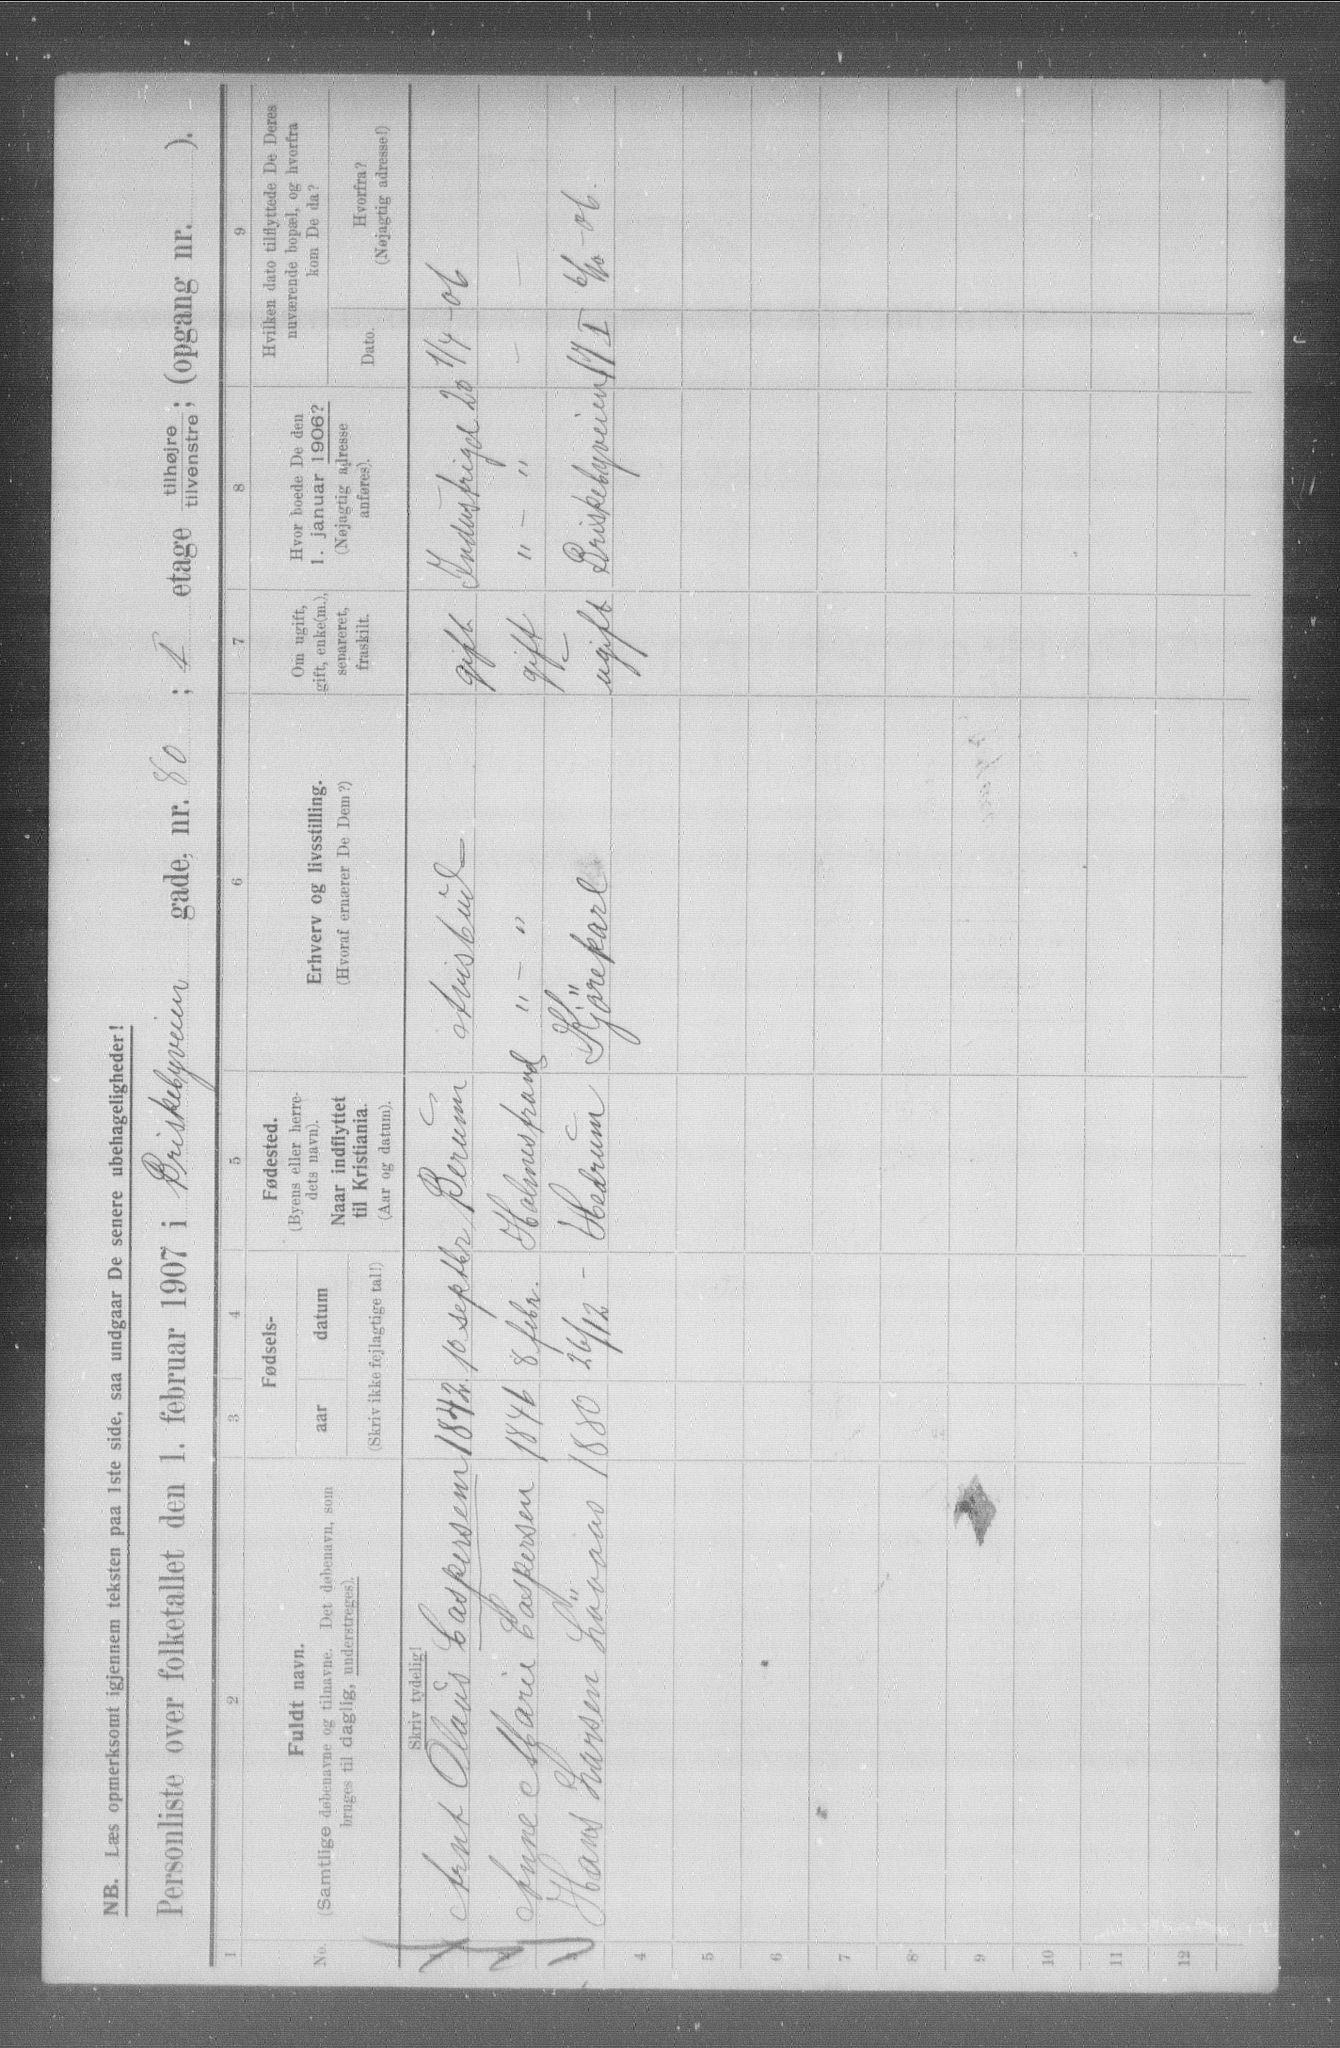 NB. Læs opmerksomt igjennem teksten paa 1ste side, saa undgaar De senere ubehageligheder!
Personliste over folketallet den 1. februar 1907 i Briskebyveien gade, nr. 80 ; I etage tilhøjre tilvenstre ; (opgang nr. ).
1 2 3 4 5 6 7 8 9
No. Fuldt navn. (Samtlige døbenavne og tilnavne. Det døbenavn, som bruges til daglig, understreges).
Fødsels- aar datum (Skriv ikke fejlagtige tal!)
Fødested. (Byens eller herredets navn). Naar indflyttet til Kristiania. (Aar og datum).
Erhverv og livsstilling. (Hvoraf ernærer De Dem?)
Om ugift, gift, enke(m.), separeret, fraskilt.
Hvor boede De den 1. januar 1906? (Nøjagtig adresse anføres).
Hvilken dato tilflyttede De Deres nuværende bopæl, og hvorfra kom De da?
Dato. Hvorfra? (Nøjagtig adresse!)
Skriv tydelig!
Arnt Olaus Caspersen 1842 10 septbr Berum Avisbud gift Industrigd 20 1/4 - 06
Anne Marie Caspersen 1846 8 febr. Holmestrand " - " gift " - " - -
Hans Larsen Lövaas 1880 26/12 - Hedrum Kjörekarl ugift Briskebyveien 17 I 6/10 - 06.
4
5
6
7
8
9
10
11
12